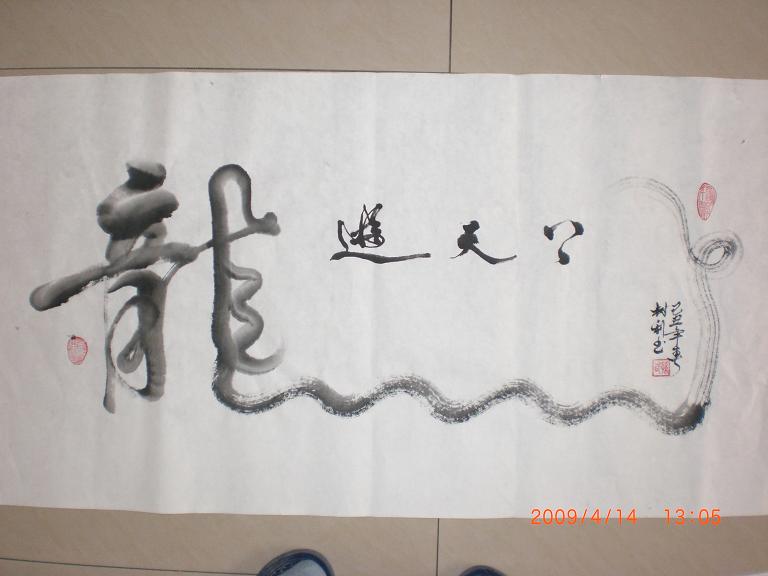 龍遊天下
己丑年春
树利书
2009/4/14 13:05